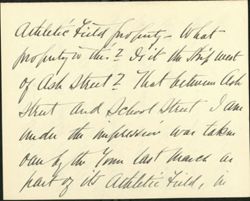 Athletic Field property - What
property is this? Is it the strip west
of Ash Street? That between Ash
Street and School Street I am
under the impression was taken
over by the Town last March as
part of its Athletic Field, in